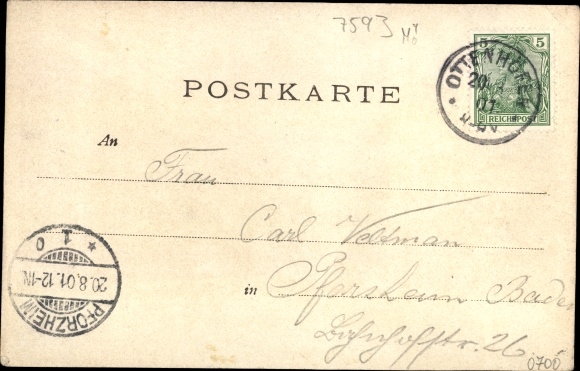 7593
5 5
REICHSPOST
OTTENHÖFEN
20
01
POSTKARTE
An
Frau
Carl Veltman
in Pforzheim Baden
Bahnhofstr. 26
PFORZHEIM
20.8.01.12-1N.
* 1 0
0700